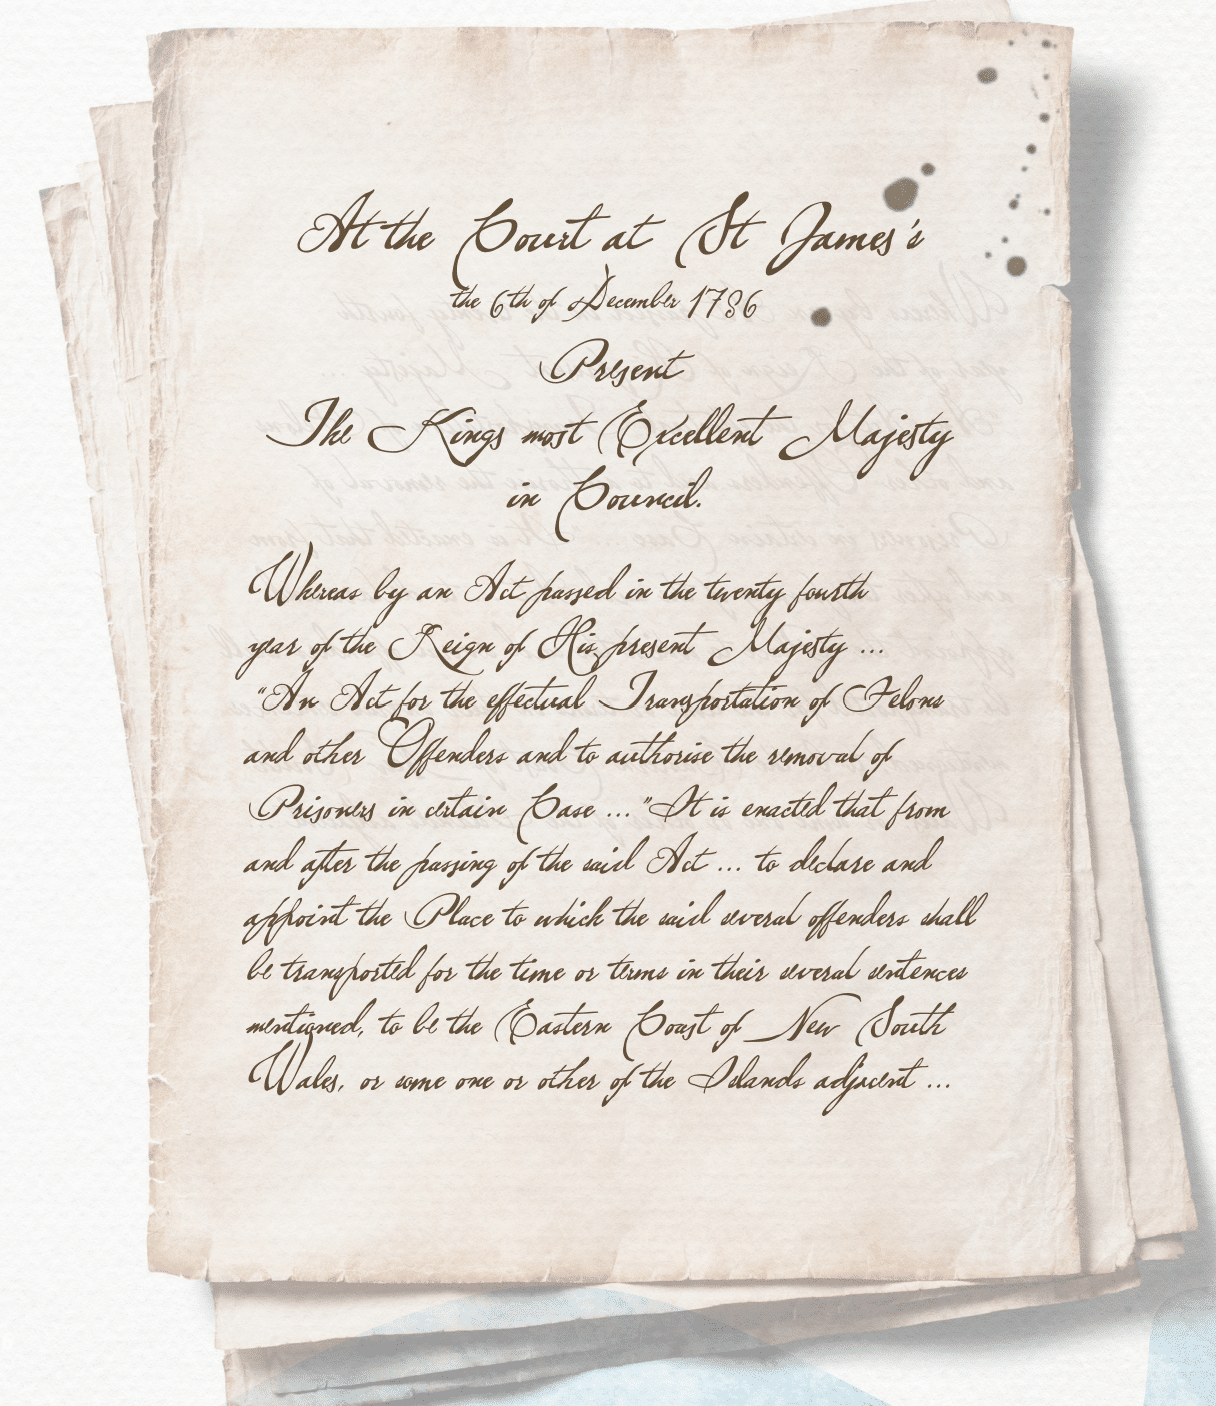 At the Court at St James's
the 6th of December 1786
Present
The Kings most Excellent Majesty
in Council.
Whereas by an Act passed in the twenty fourth
year of the Reign of His present Majesty ...
"An Act for the effectual Transportation of Felons
and other Offenders and to authorise the removal of
Prisoners in certain Case ..." It is enacted that from
and after the passing of the said Act ... to declare and
appoint the Place to which the said several offenders shall
be transported for the time or terms in their several sentences
mentioned, to be the Eastern Coast of New South
Wales, or some one or other of the Islands adjacent ...